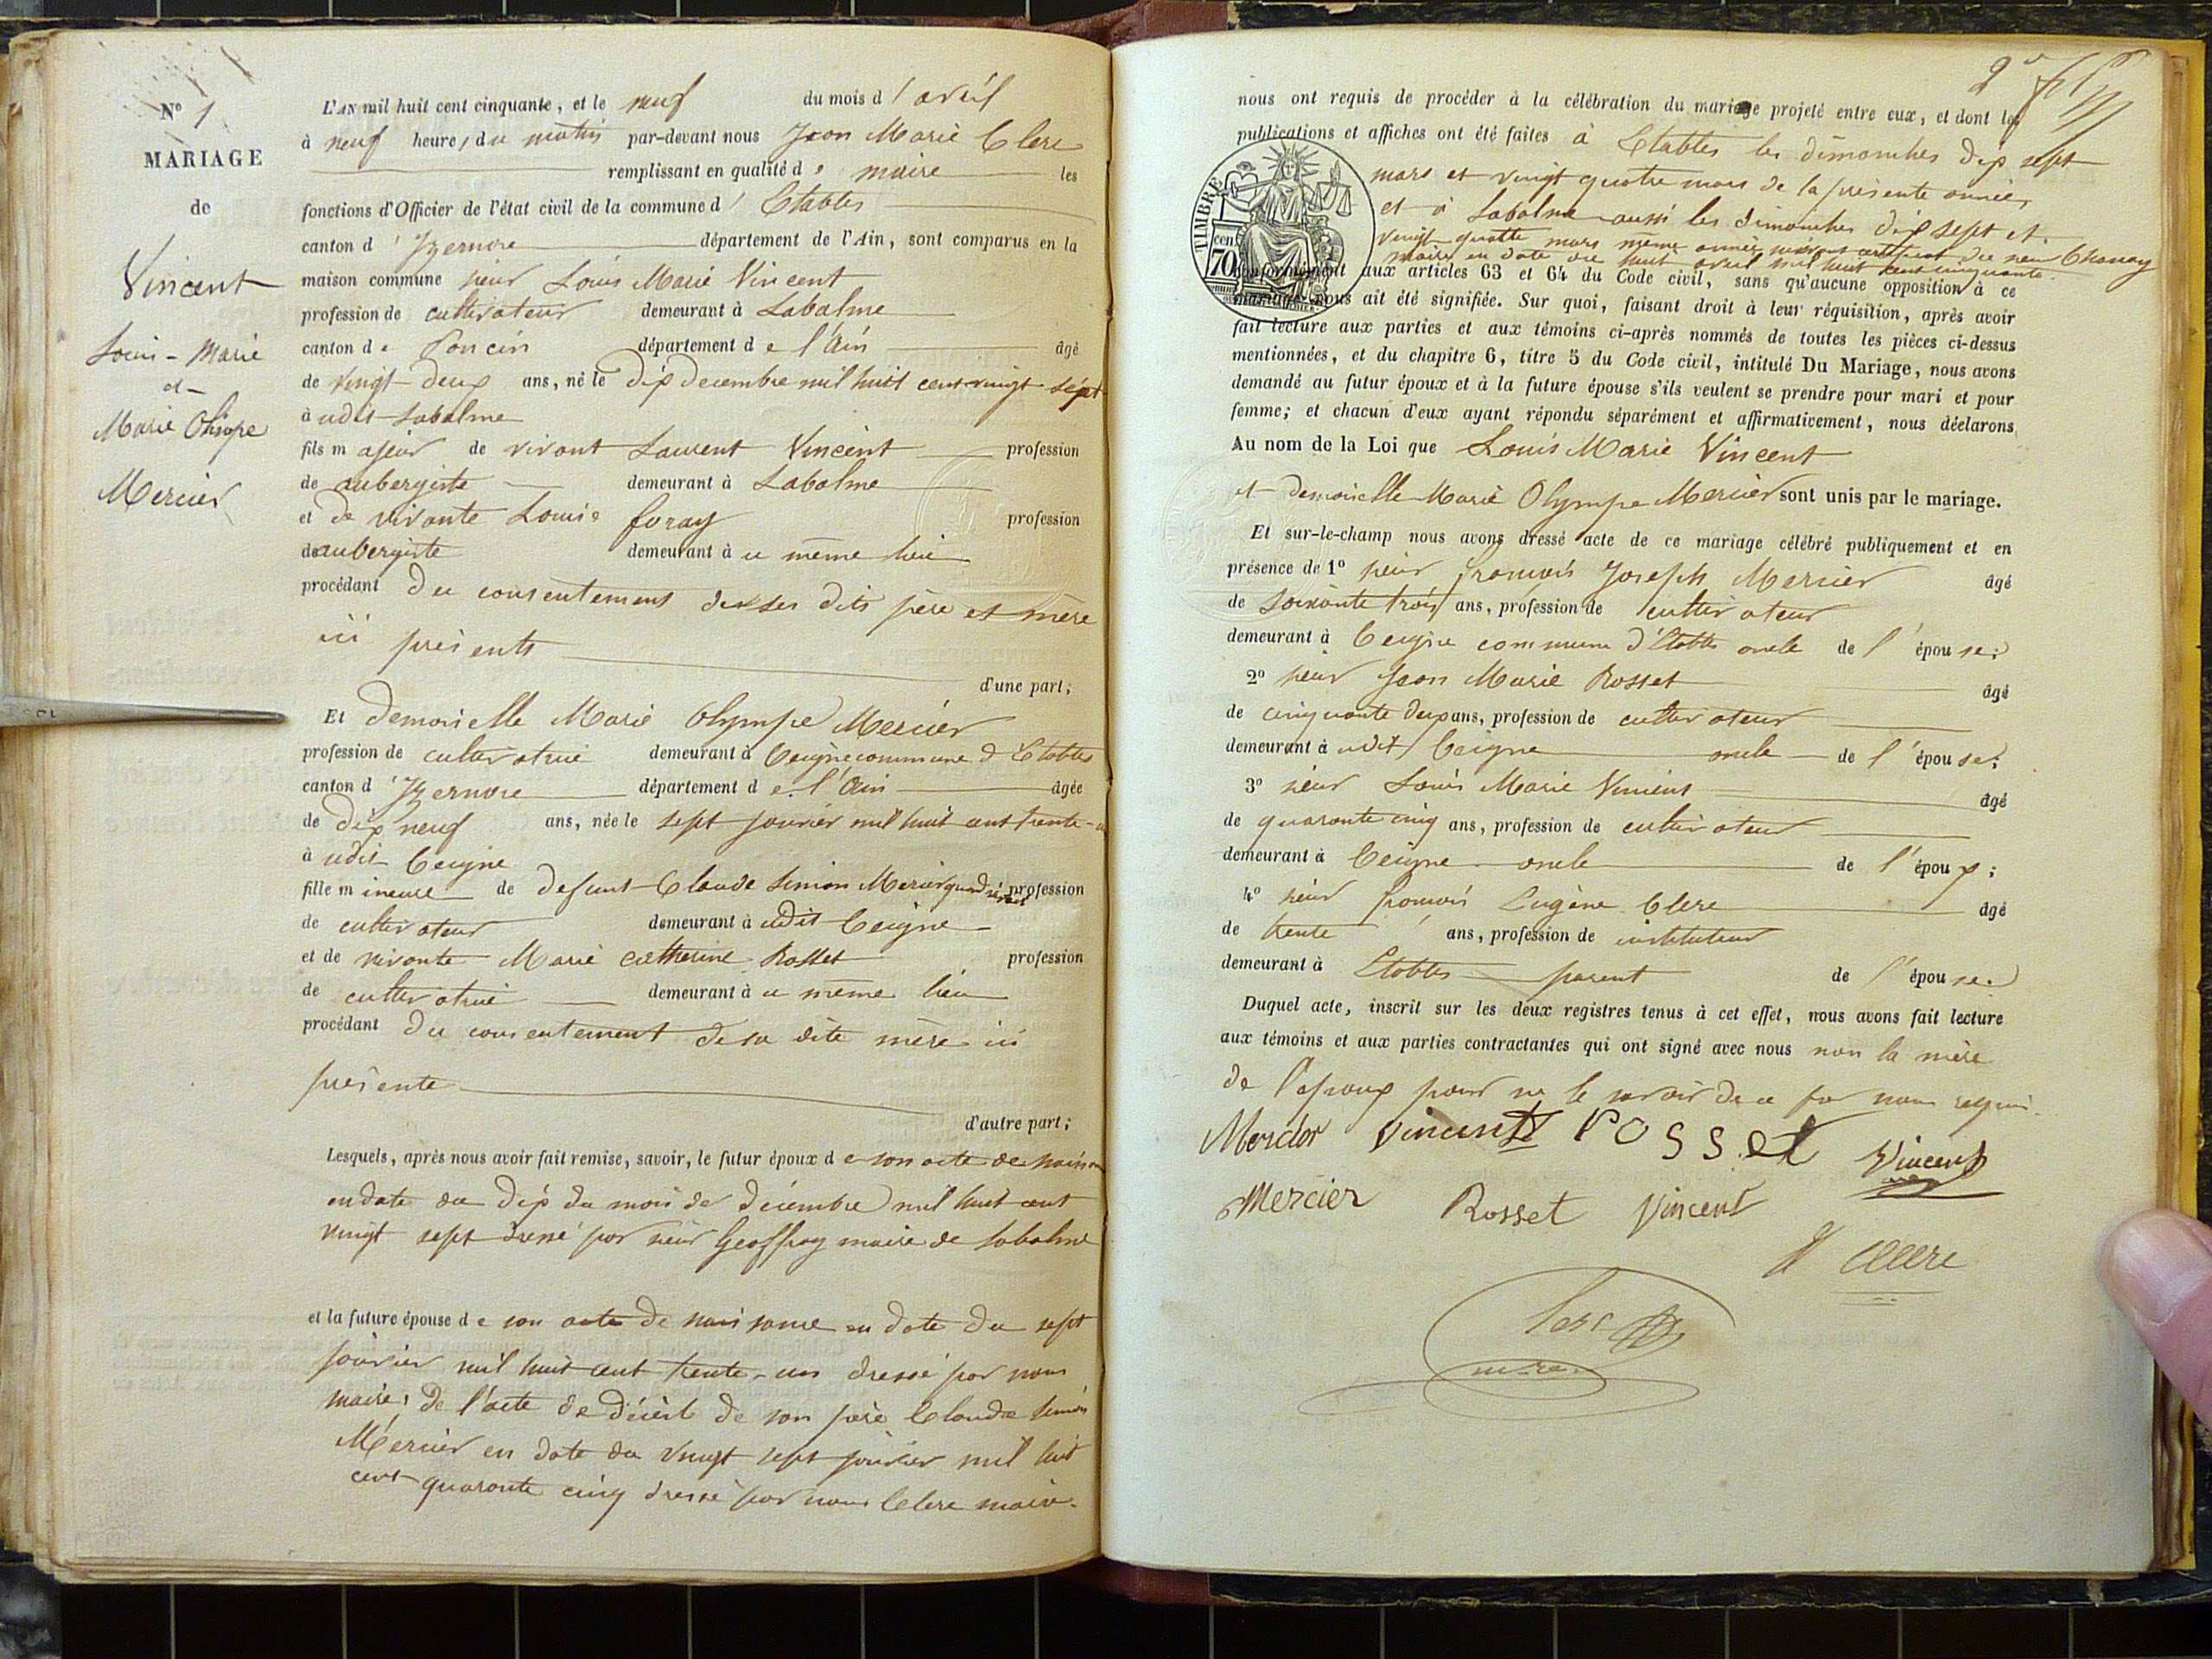 N° 1
MARIAGE
de
Vincent
Louis-Marie
et
Marie Olimpe
Mercier
L'AN mil huit cent cinquante, et le neuf du mois d'avril
à neuf heures du matin par-devant nous Jean Marie Clerc
remplissant en qualité de maire les
fonctions d'Officier de l'état civil de la commune d'Etables
canton d'Izernore département de l'Ain, sont comparus en la
maison commune sieur Louis Marie Vincent
profession de cultivateur demeurant à Labalme
canton de Poncin département de l'Ain âgé
de vingt-deux ans, né le dix decembre mil huit cent vingt sept
à udit Labalme
fils majeur de vivant Laurent Vincent profession
de aubergiste demeurant à Labalme
et de vivante Louise foray profession
de aubergiste demeurant à ce même lieu
procédant du consentement de ses dits père et mère
ici présents
d'une part;
Et demoiselle Marie Olympe Mercier
profession de cultivatrice demeurant à Ceigne commune d'Etables
canton d'Izernore département de l'Ain âgée
de dix neuf ans, née le sept janvier mil huit cent trente-un
à udit Ceigne
fille mineure de defunt Claude Simon Mercier quand vivait profession
de cultivateur demeurant à udit Ceigne
et de vivante Marie Catherine Rosset profession
de cultivatrice demeurant à ce même lieu
procédant du consentement de sa dite mère ici
présente
d'autre part;
Lesquels, après nous avoir fait remise, savoir, le futur époux de son acte de naissance
en date du dix du mois de décembre mil huit cent
vingt sept dressé par sieur Geoffray maire de Labalme
et la future épouse de son acte de naissance en date du sept
janvier mil huit cent trente-un dressé par nous
maire; de l'acte de décès de son père Claude Simon
Mercier en date du vingt sept janvier mil huit
cent quarante cinq dressé par nous Clerc maire.
2e
nous ont requis de procéder à la célébration du mariage projeté entre eux, et dont les
publications et affiches ont été faites à Etables les dimanches dix sept
mars et vingt quatre mars de la présente année,
et à Labalme aussi les dimanches dix sept et
vingt-quatre mars même année suivant certificat du sieur Chanay
maire en date du huit avril mil huit cent cinquante.
TIMBRE
70 cen
conformément aux articles 63 et 64 du Code civil, sans qu'aucune opposition à ce
mariage nous ait été signifiée. Sur quoi, faisant droit à leur réquisition, après avoir
fait lecture aux parties et aux témoins ci-après nommés de toutes les pièces ci-dessus
mentionnées, et du chapitre 6, titre 5 du Code civil, intitulé Du Mariage, nous avons
demandé au futur époux et à la future épouse s'ils veulent se prendre pour mari et pour
femme; et chacun d'eux ayant répondu séparément et affirmativement, nous déclarons
Au nom de la Loi que Louis Marie Vincent
et demoiselle Marie Olympe Mercier sont unis par le mariage.
Et sur-le-champ nous avons dressé acte de ce mariage célébré publiquement et en
présence de 1° sieur françois Joseph Mercier âgé
de soixante trois ans, profession de cultivateur
demeurant à Ceigne commune d'Etables oncle de l'épouse;
2° sieur Jean Marie Rosset âgé
de cinquante deux ans, profession de cultivateur
demeurant à udit Ceigne oncle de l'épouse;
3° sieur Louis Marie Vincent âgé
de quarante cinq ans, profession de cultivateur
demeurant à Ceigne oncle de l'époux;
4° sieur françois Eugène Clerc âgé
de trente ans, profession de instituteur
demeurant à Etables parent de l'épouse.
Duquel acte, inscrit sur les deux registres tenus à cet effet, nous avons fait lecture
aux témoins et aux parties contractantes qui ont signé avec nous non la mère
de l'époux pour ne le savoir de ce par nous requis.
Mercier Vincent Rosset Vincent
Mercier Rosset Vincent
Clerc
Clerc
maire